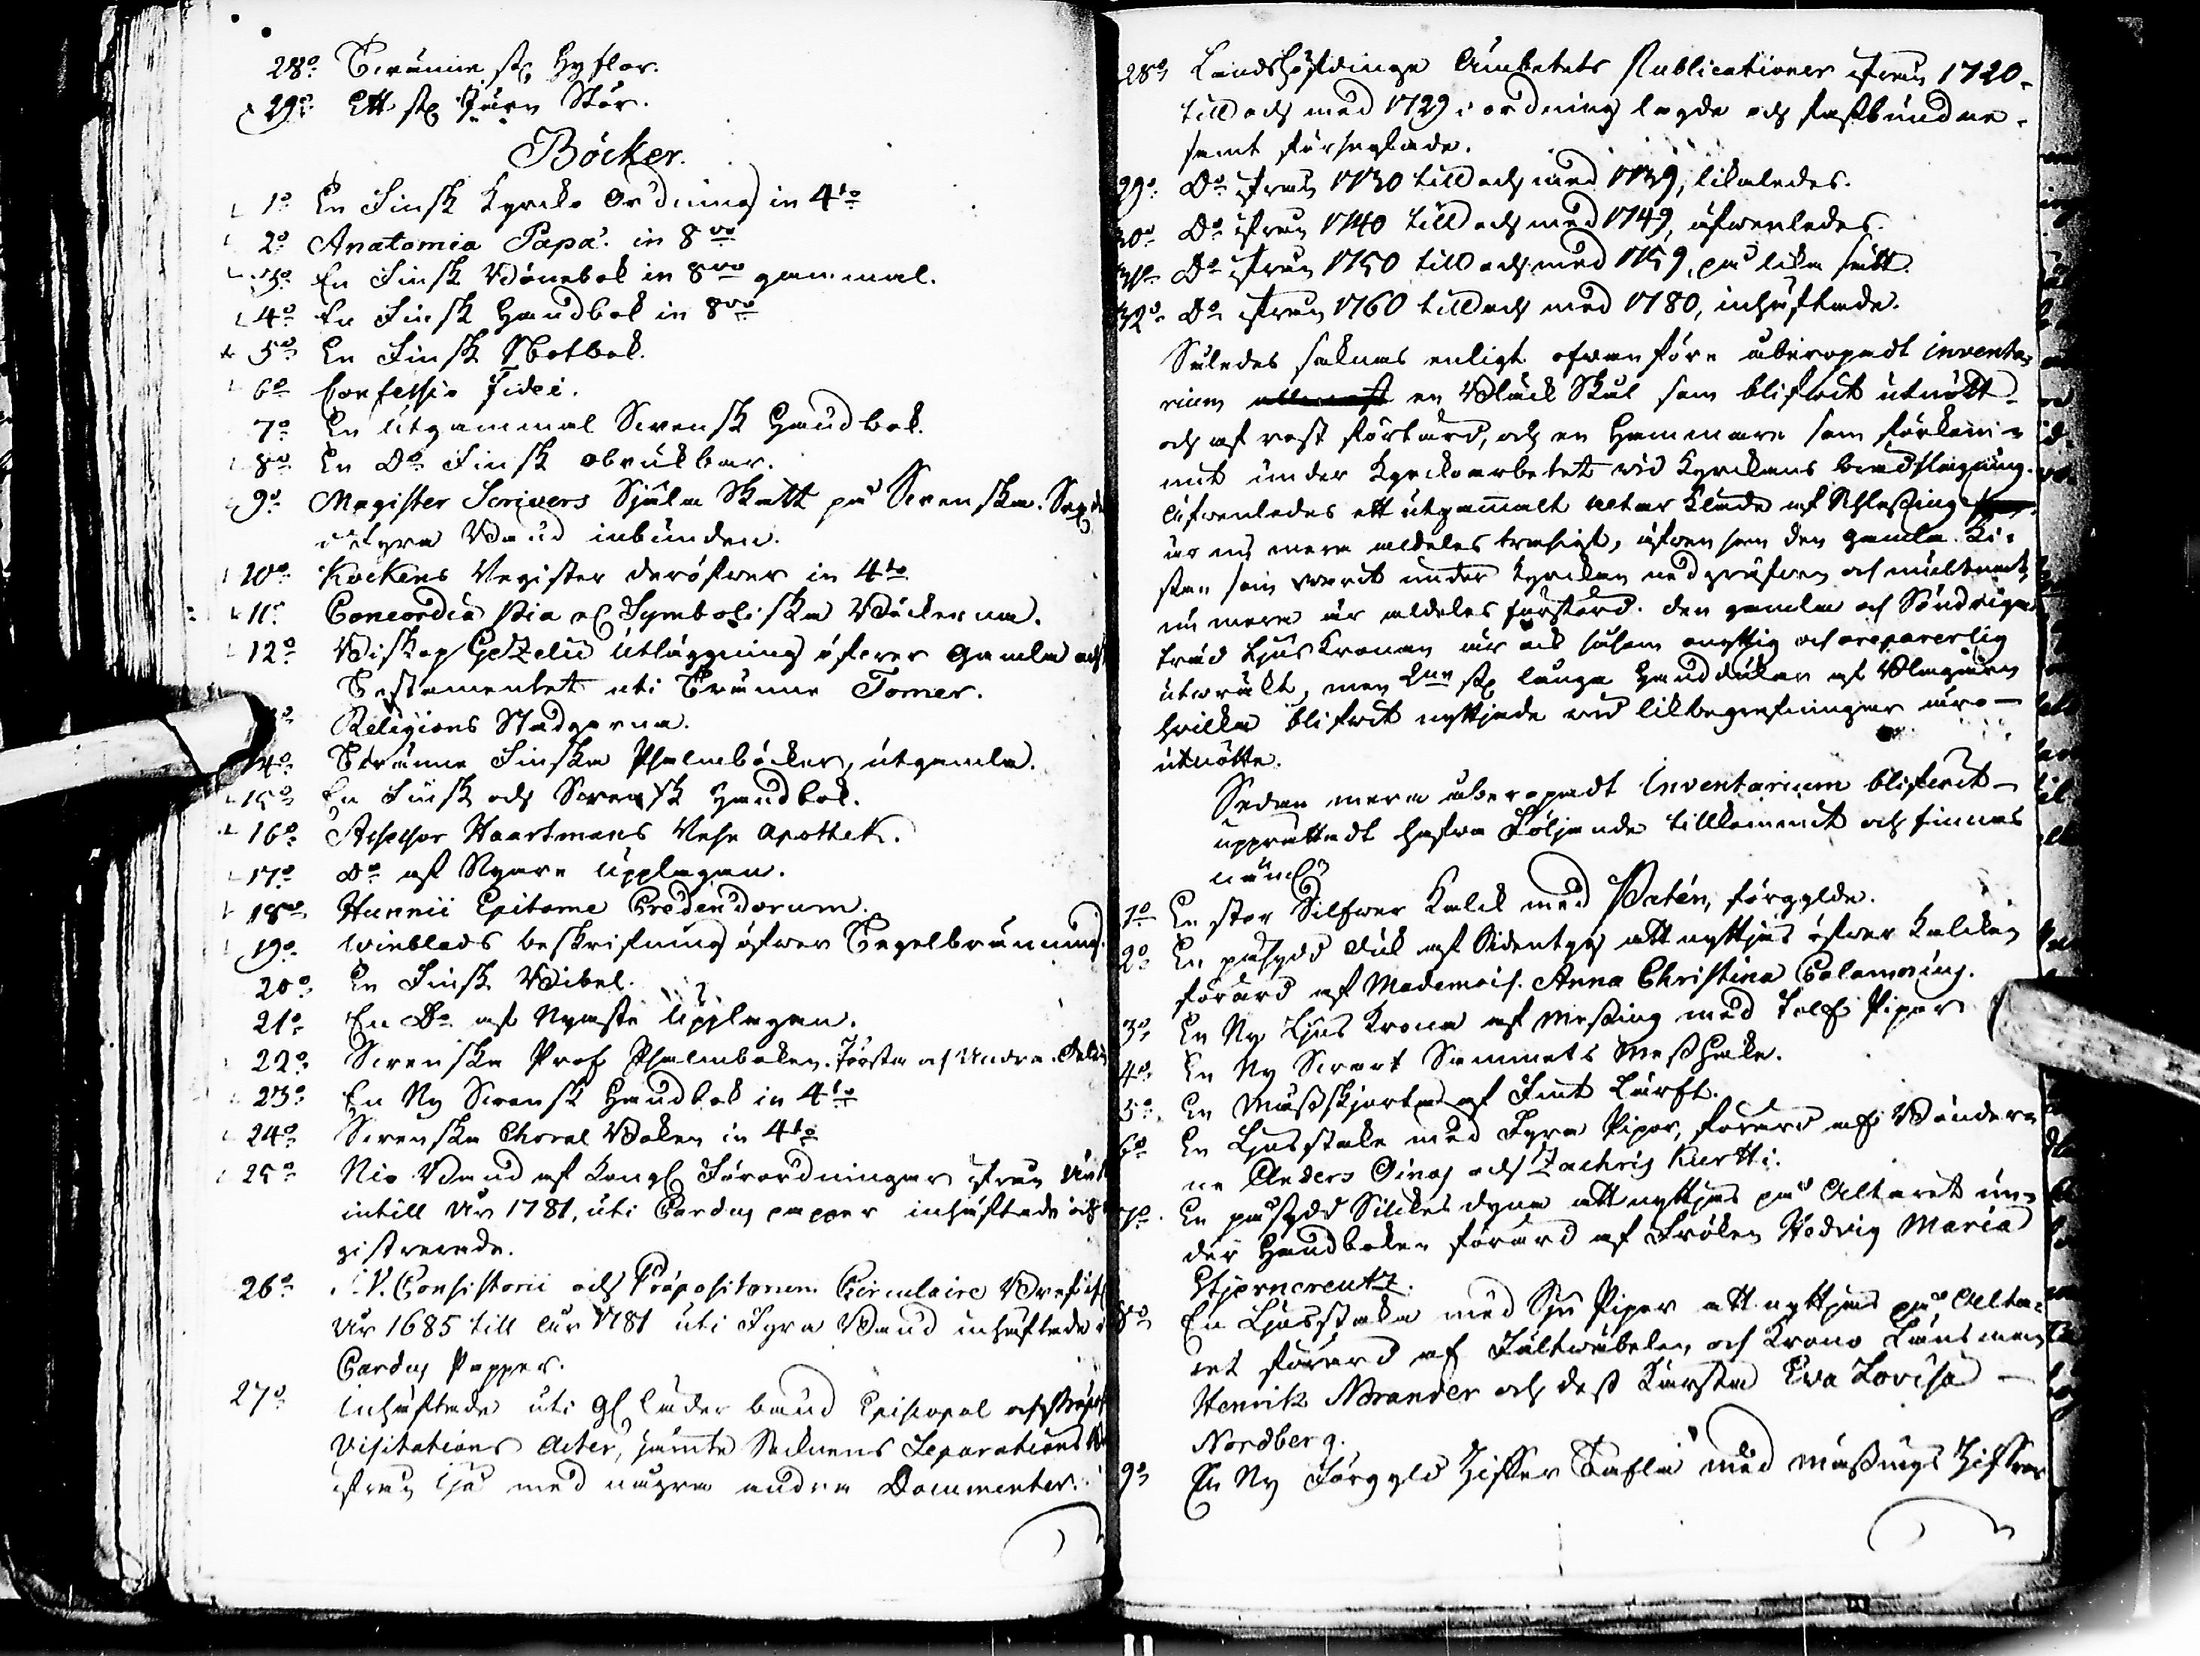 28:o Trenne st: Hyflar.
29:o Ett st: Järn Stör.
Böcker.
1:o En Finsk Kyrcko Ordning in 4:to
2:o Anatomia Papa: in 8:vo
3:o En Finsk Bönebok in 8:vo gammal.
4:o En Finsk Handbok in 8:vo
5:o En Finsk Notbok.
6:o Confessio Fidei.
7:o En Utgammal Svensk Handbok.
8:o En D:o Finsk obrukbar.
9:o Magister Scrivers Själa Skatt på Svenska.
i Fyra Band inbunden.
10:o Kockens Register deröfver in 4:to
11:o Concordia Pia el: Symboliska Böckerna.
12:o Biskop Gezelii Utläggning öfver Gamla och
Testamentet uti Trenne Tomer.
Religions Stadgarna.
14:o Trenne Finska Psalmböcker, utgamla.
15:o En Finsk och Svensk Handbok.
16:o Assessor Haartmans Rese Apothek.
17:o D:o af Nyare Upplagan.
18:o Hunnii Epitome Credendorum.
19:o Winblads beskrifning öfver Tegelbränning.
20:o En Finsk Bibel.
21:o En D:o af Nyaste Upplagan.
22:o Svenska Prof Psalmboken. Första och Andra
23:o En Ny Svensk Handbok in 4:to
24:o Svenska Choral Boken in 4:to
25:o Nio Band af Kongl: Förordningar ifrån
intill År 1781, uti Cardus papper inhäftade och
gistrerade.
26:o V. Consistorii och Præpositorum Circulaire Bref
År 1685 till år 1781 uti Fyra Band inhäftade i
Cardus Papper.
27:o Inhäftade uti läder band Episcopal och
Visitations Acter, jämte Socknens Separations
ifrån med några andra Documenter.
28:o Landshöfdinge Ämbetets Publicationer ifrån 1720
till och med 1729 i ordning lagde och fastbundne
samt förseglade.
29:o D:o ifrån 1730 till och med 1739, likaledes.
30:o D:o ifrån 1740 till och med 1749, äfvenledes.
31:o D:o ifrån 1750 till och med 1759, på lika sätt.
32:o D:o ifrån 1760 till och med 1780, inhäftade.
Således saknas enligt ofvanföre åberopadt inventa-
rium en Bläck Skål som blifvit utnött
och af rost förtärd, och en Hammare som förkom-
mit under Kyrckoarbetet vid Kyrckans brädslagning.
Äfvenledes ett utgammalt Altar Kläde af
är nu mera aldeles trasigt, äfven som den gamla Ki-
stan som varit under Kyrckan nedgräfven och
nu mera är aldeles förstörd. den gamla och Söndriga
träd Ljus Kronan är ock såsom onyttig och oreparerlig
utvräkt, men st: långa Handdukar af Blaggarn
hvilka blifvit nyttjade vid likbegrafningar äro
utnötte.
Sedan mera åberopadt Inventarium blifvit
upprättadt hafva Följande tillkommit och finnas
näml:
1:o En stor Silfver Kalck med Patén, förgylde.
2:o En påsydd duk af Sidentyg att nyttjas öfver Kalcken
förärd af Mademois. Anna Christina Calamnius.
3:o En Ny Ljus Krona af Messing med Tolf Pipor
4:o En Ny Svart Sammets Messhake.
5:o En Mässskjorta af Fint Lärft.
6:o En Ljusstake med Fyra Pipor, förärd af Bönderna
ne Anders Oinas och Zachris Kurtti.
7:o En påsydd Silckes dyna att nyttjas på Altaret un-
der Handboken förärd af Fröken Hedvig Maria
Stjerncreutz.
8:o En Ljusstake med Sju Pipor att nyttjas på Alta-
ret förärd af Fältväbelen, och Krono Länsman
Henrik Brander och dess Kärsta Eva Lovisa
Nordberg.
9:o En Ny Förgyld Ziffer Tafla med Mässings Ziffror